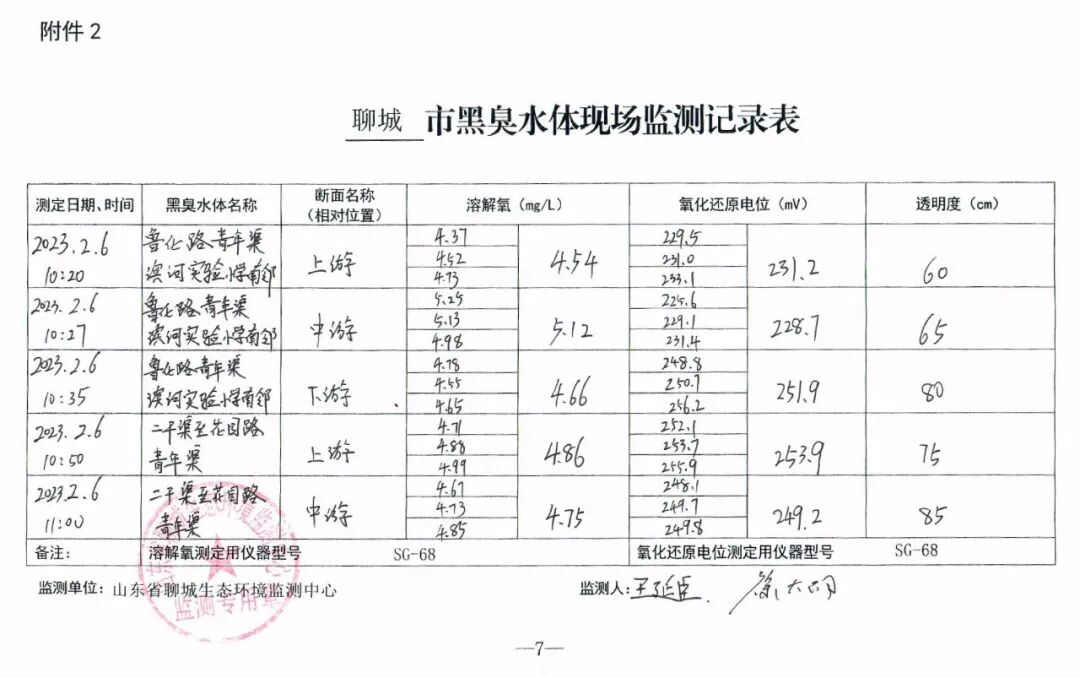 附件 2
聊城 市黑臭水体现场监测记录表
测定日期、时间 黑臭水体名称 断面名称 溶解氧 (mg/L) 氧化还原电位 (mV) 透明度 (cm)
(相对位置)
2023.2.6 鲁化路青年渠 上游 4.37 4.54 229.5 231.2 60
10:20 滨河实验小学南邻 4.52 231.0
4.73 233.1
2023.2.6 鲁化路青年渠 中游 5.25 5.12 225.6 228.7 65
10:27 滨河实验小学南邻 5.13 229.1
4.98 231.4
2023.2.6 鲁化路青年渠 下游 4.78 4.66 248.8 251.9 80
10:35 滨河实验小学南邻 4.55 250.7
4.65 256.2
2023.2.6 二干渠至花园路 上游 4.71 4.86 252.1 253.9 75
10:50 青年渠 4.88 253.7
4.99 255.9
2023.2.6 二干渠至花园路 中游 4.67 4.75 248.1 249.2 85
11:00 青年渠 4.73 249.7
4.85 249.8
备注: 溶解氧测定用仪器型号 SG-68 氧化还原电位测定用仪器型号 SG-68
监测单位: 山东省聊城生态环境监测中心 监测人: 王延臣
监测专用章
—7—